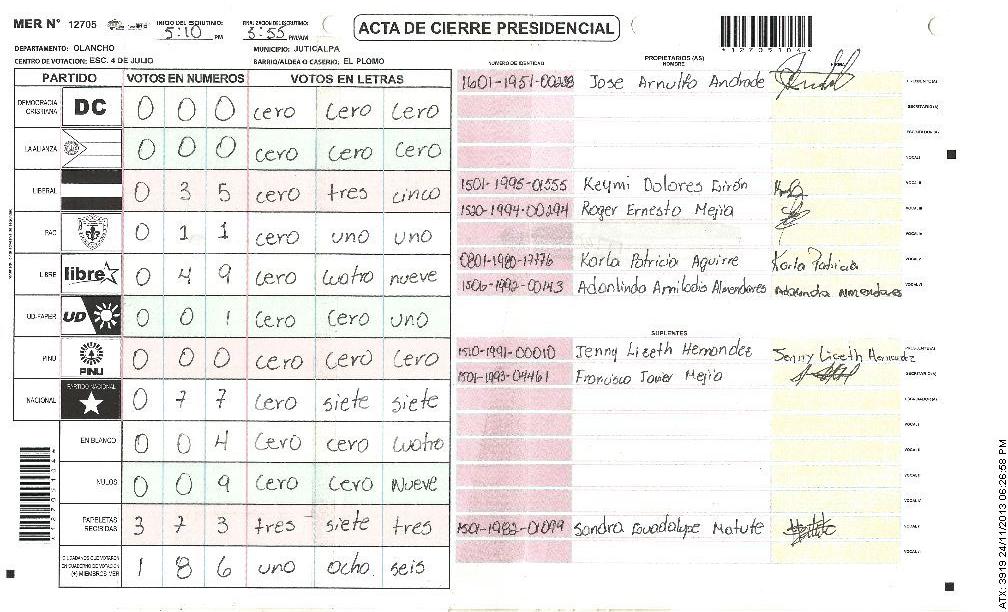 MER N° 12705
INICIO DEL ESCRUTINIO: 5:10 PM
3:55 PM/AM
ACTA DE CIERRE PRESIDENCIAL
DEPARTAMENTO: OLANCHO
MUNICIPIO: JUTICALPA
CENTRO DE VOTACION: ESC. 4 DE JULIO
BARRIO/ALDEA O CASERIO: EL PLOMO
PARTIDO VOTOS EN NUMEROS VOTOS EN LETRAS
DEMOCRACIA CRISTIANA DC 0 0 0 cero cero cero
LA ALIANZA 0 0 0 cero cero cero
LIBERAL 0 3 5 cero tres cinco
PAC 0 1 1 cero uno uno
LIBRE libre 0 4 9 cero cuatro nueve
UD-FAPER UD 0 0 1 cero cero uno
PINU PINU 0 0 0 cero cero cero
NACIONAL PARTIDO NACIONAL 0 7 7 cero siete siete
EN BLANCO 0 0 4 cero cero cuatro
NULOS 0 0 9 cero cero nueve
PAPELETAS RECIBIDAS 3 7 3 tres siete tres
CIUDADANOS QUE VOTARON EN CUADERNO DE VOTACION (+) MIEMBROS MER 1 8 6 uno ocho seis
PROPIETARIOS (AS)
NUMERO DE IDENTIDAD NOMBRE FIRMA
Jose Arnulfo Andrade
SECRETARIO(A)
VOCAL I
1501-1995-01555 Keymi Dolores Girón VOCAL II
1520-1994-00294 Roger Ernesto Mejia VOCAL III
0801-1980-17776 Karla Patricia Aguirre Karla Patricia
1506-1992-00143
SUPLENTES
1510-1991-00010 Jenny Lizeth Hernandez Jenny Lizeth Hernandez
1501-1993-04461 Francisco Javier Mejia SECRETARIO(A)
ESCRUTADOR(A)
VOCAL I
VOCAL II
1501-1982-01099 Sandra Guadalupe Matute
ATX: 3919 24/11/2013 06:26:58 PM